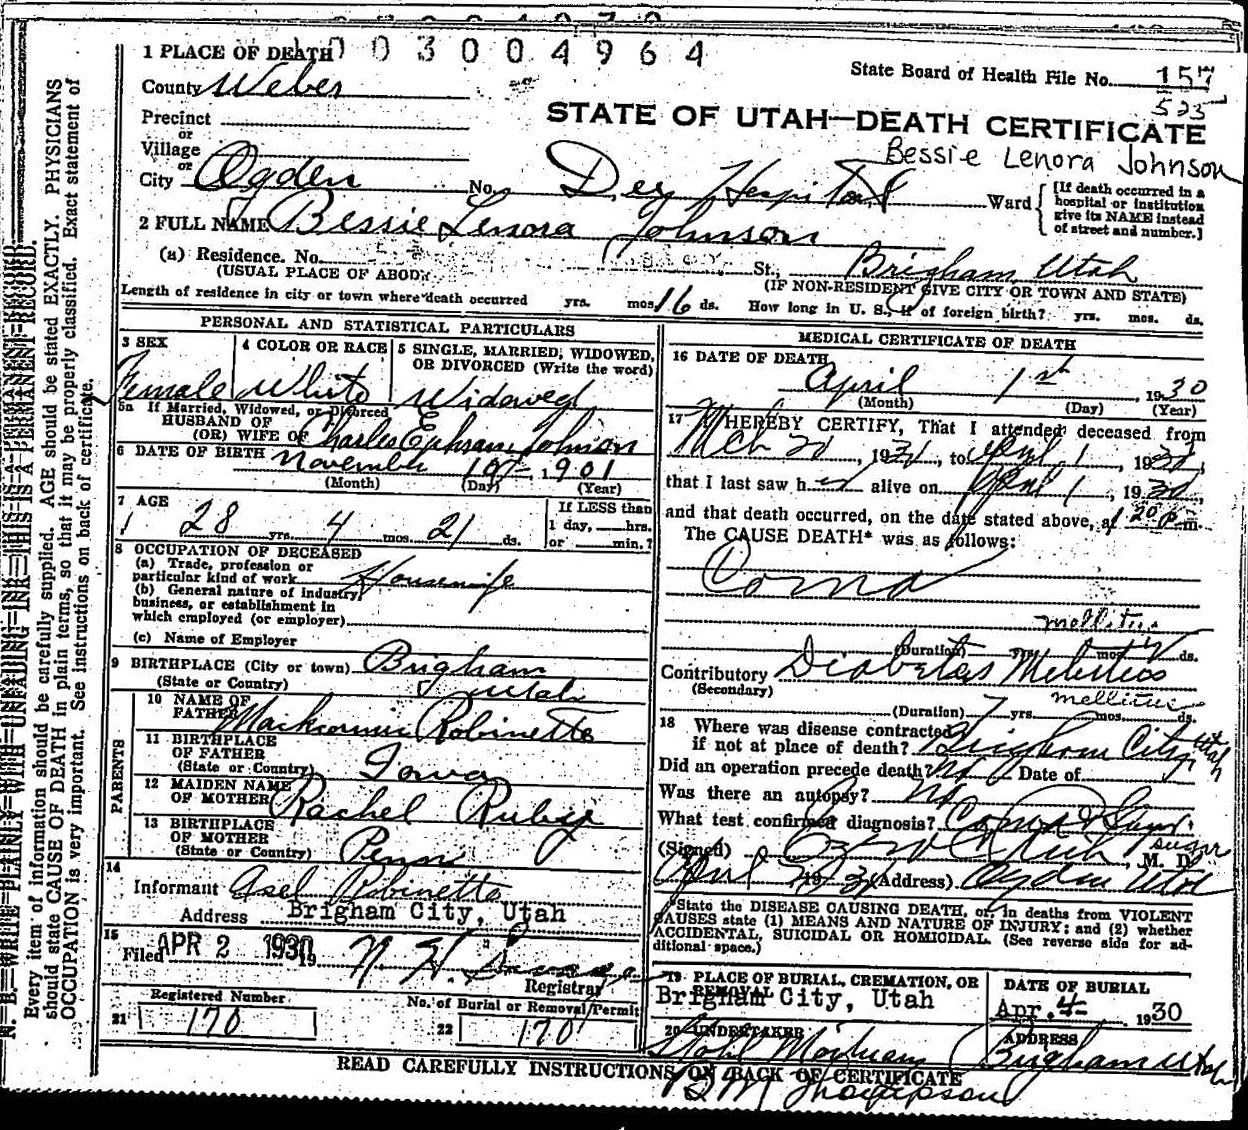 1 PLACE OF DEATH 1003004964
State Board of Health File No. 157
525
County Weber
STATE OF UTAH—DEATH CERTIFICATE
Bessie Lenora Johnson
Precinct
or
Village
or
City Ogden No. Dee Hospital Ward
[If death occurred in a
hospital or institution
give its NAME instead
of street and number.]
2 FULL NAME Bessie Lenora Johnson
(a) Residence. No. St., Brigham Utah
(USUAL PLACE OF ABODE) (IF NON-RESIDENT GIVE CITY OR TOWN AND STATE)
Length of residence in city or town where death occurred yrs. mos. 16 ds. How long in U. S., if of foreign birth? yrs. mos. ds.
PERSONAL AND STATISTICAL PARTICULARS
3 SEX
Female
4 COLOR OR RACE
White
5 SINGLE, MARRIED, WIDOWED,
OR DIVORCED (Write the word)
Widowed
5a If Married, Widowed, or Divorced
HUSBAND OF
(OR) WIFE OF Charles Ephram Johnson
6 DATE OF BIRTH November 10, 1901
(Month) (Day) (Year)
7 AGE
28 yrs. 4 mos. 21 ds.
If LESS than
1 day, hrs.
or min.?
8 OCCUPATION OF DECEASED
(a) Trade, profession or
particular kind of work Housewife
(b) General nature of industry,
business, or establishment in
which employed (or employer)
(c) Name of Employer
9 BIRTHPLACE (City or town) Brigham
(State or Country) Utah
PARENTS
10 NAME OF
FATHER Robinette
11 BIRTHPLACE
OF FATHER
(State or Country) Iowa
12 MAIDEN NAME
OF MOTHER Rachel Ruby
13 BIRTHPLACE
OF MOTHER
(State or Country) Penn
14
Informant Asel Robinette
Address Brigham City, Utah
15
Filed APR 2 1930 19 N. H.
Registrar
Registered Number
21 170
No. of Burial or Removal Permit
22 170
MEDICAL CERTIFICATE OF DEATH
16 DATE OF DEATH
April 1st 1930
(Month) (Day) (Year)
17 I HEREBY CERTIFY, That I attended deceased from
Mch, 19, to April 1, 1930,
that I last saw her alive on April 1, 1930,
and that death occurred, on the date stated above, at p m.
The CAUSE DEATH* was as follows:
Coma
mellitus
(Duration) yrs. mos. ds.
Contributory Diabetes Melitus
(Secondary)
mellitus
(Duration) 7 yrs. mos. ds.
18 Where was disease contracted
if not at place of death? Brigham City, Utah
Did an operation precede death? No Date of
Was there an autopsy? No
What test confirmed diagnosis? Coma & Sugar
sugar
(Signed) , M. D.
April 19 (Address) Ogden Utah
*State the DISEASE CAUSING DEATH, or, in deaths from VIOLENT
CAUSES state (1) MEANS AND NATURE OF INJURY; and (2) whether
ACCIDENTAL, SUICIDAL OR HOMICIDAL. (See reverse side for ad-
ditional space.)
19 PLACE OF BURIAL, CREMATION, OR
REMOVAL
Brigham City, Utah
DATE OF BURIAL
Apr. 4 1930
20 UNDERTAKER
Mortuary
ADDRESS
Brigham Utah
READ CAREFULLY INSTRUCTIONS ON BACK OF CERTIFICATE
Thompson
N. B.—WRITE PLAINLY WITH UNFADING INK—THIS IS A PERMANENT RECORD.
Every item of information should be carefully supplied. AGE should be stated EXACTLY. PHYSICIANS
should state CAUSE OF DEATH in plain terms, so that it may be properly classified. Exact statement of
OCCUPATION is very important. See instructions on back of certificate.